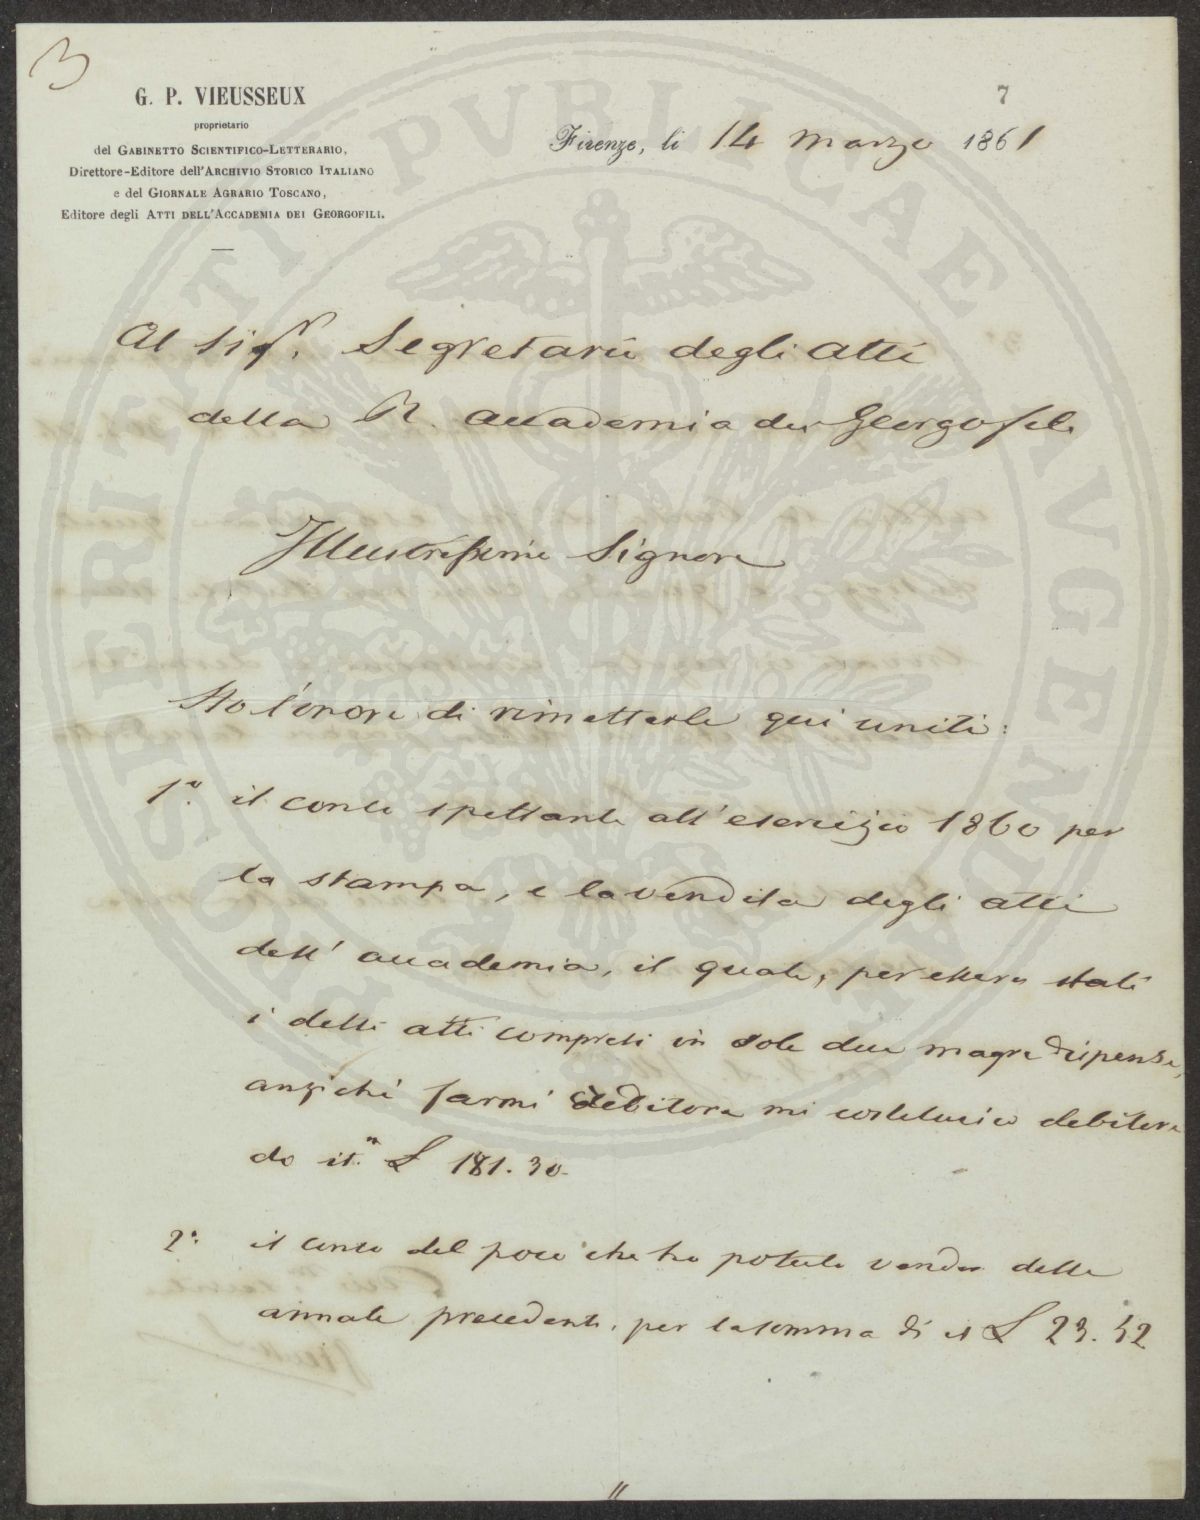 3
G. P. VIEUSSEUX
proprietario
del GABINETTO SCIENTIFICO-LETTERARIO,
Direttore-Editore dell'ARCHIVIO STORICO ITALIANO
e del GIORNALE AGRARIO TOSCANO,
Editore degli ATTI DELL'ACCADEMIA DEI GEORGOFILI.
7
Firenze, li 14 Marzo 1861
Al Sigr. Segretario degli Atti
della R. Accademia dei Georgofili
Illustrissimo Signore
Ho l'onore di rimetterle qui uniti:
1o. il conto spettante all'esercizio 1860 per
la stampa, e la vendita degli atti
dell'accademia, il quale, per essere stati
i detti atti compresi in sole due magre dispense,
anziché farmi debitore mi costituisce debitore
di it.n £ 181.30.
2o. il conto del poco che ho potuto vender delle
annate precedenti, per la somma di it £ 23.52
PROSPERITATI PVBLICAE AVGENDAE